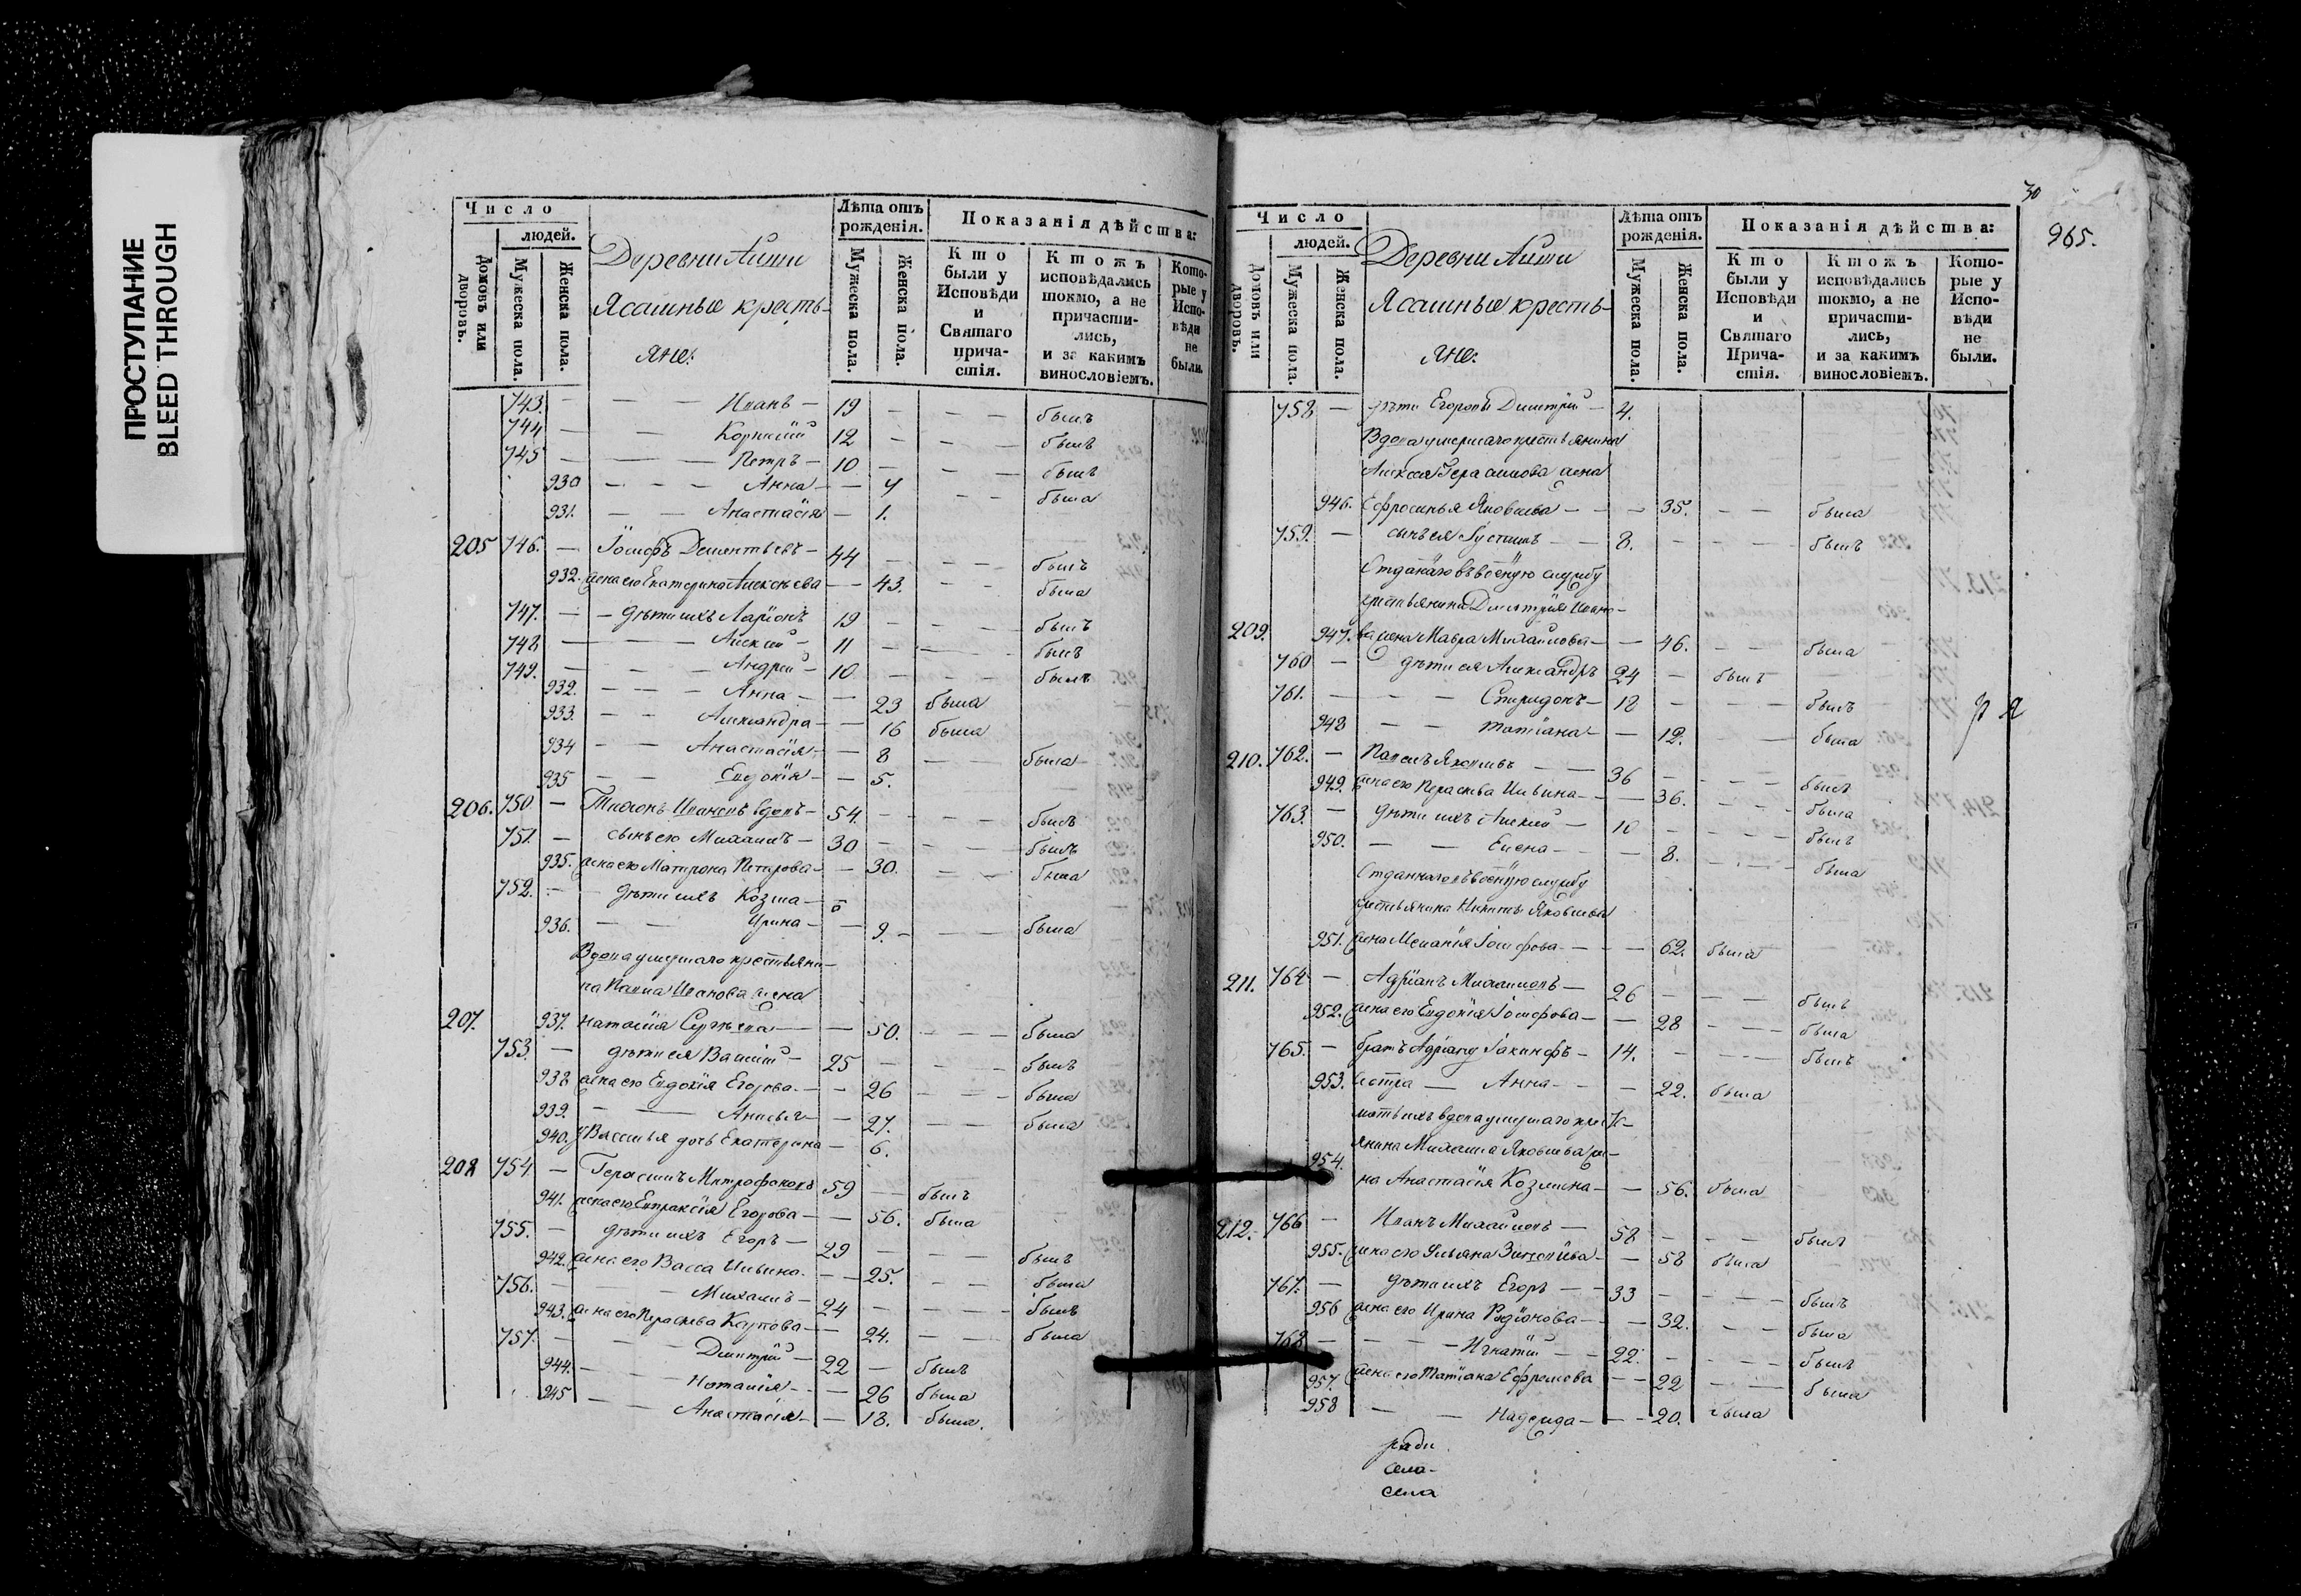 ПРОСТУПАНИЕ
BLEED THROUGH
Число
людей.
Домовъ или дворовъ.
Мужеска пола.
Женска пола.
Деревни Аиши
Ясашные кресть-
яне:
Лѣта отъ рожденія.
Мужеска пола.
Женска пола.
Показанія дѣйства:
Кто были у Исповѣди и Святаго прича- стія.
Ктожъ исповѣдались токмо, а не причасти- лись, и за какимъ винословіемъ.
Кото- рые у Испо- вѣди не были.
743. — — — Иванъ — 19 — — — былъ
744 — — Корнилій 12 — — — былъ
745 — — — Петръ — 10 — — — былъ
930 — — — Анна — — 4 — — была
931. — — Анастасія — 1.
205 746. — Іосифъ Дементьевъ — 44 — — — былъ
932. жена его Екатерина Алексѣева — — 43. — — была
747. — — дѣти ихъ Ларіонъ 19 — — — былъ
748 — — — Алексѣй — 11 — — — былъ
749. — — — Андрей — 10 — — — былъ
932. — — — Анна — — 23 была
933. — — Александра — — 16 была
934 — — Анастасія — — 8 — — была
935 — — Евдокія — — 5.
206. 750 — Тихонъ Ивановъ вдовъ — 54. — — — былъ
751. — сынъ его Михаилъ — 30 — — — былъ
935. жена его Матрона Петрова — — 30. — — была
752. — — дѣти ихъ Козма — 6
936. — — Ирина — — 9. — — — была
Вдова умершаго крестьяни-
на Павла Иванова жена
207. 937. Наталія Сергѣева — — 50. — — — была
753. — дѣти ея Василій — 25 — — — былъ
938 жена его Евдокія Егорова. — — 26 — — — была
939. — — — Анисья — — 27. — — была
940. у Василья дочь Екатерина — 6.
208 754. — Герасимъ Митрофановъ 59 — былъ
941. жена его Евпраксія Егорова — — 56. была
755. — дѣти ихъ Егоръ — 29 — — — былъ
942. жена его Васса Ильина. — — 25. — — была
756. — — Михаилъ — 24 — — — былъ
943. жена его Параскева Карпова — — 24. — — была
757. — — — Дмитрій — 22 — былъ
944. — — Наталія — — 26 была
945 — — Анастасія — — 18. была.
30
965.
Число
людей.
Домовъ или дворовъ.
Мужеска пола.
Женска пола.
Деревни Аиши
Ясашные кресть-
яне:
Лѣта отъ рожденія.
Мужеска пола.
Женска пола.
Показанія дѣйства:
Кто были у Исповѣди и Святаго Прича- стія.
Ктожъ исповѣдались токмо, а не причасти- лись, и за какимъ винословіемъ.
Кото- рые у Испо- вѣди не были.
758 — дѣти Егоровы Дмитрій — 4.
Вдова умершаго крестьянина
Алексѣя Герасимова жена
946. Ефросинья Яковлева — — — 35. — — была
759. — сынъ ея Густинъ — — 8. — — — былъ
Отданаго въ военую службу
крестьянина Дмитрія Ивано-
209. 947. ва жена Мавра Михайлова — — 46. — — была
760 — дѣти ея Александръ 24 — былъ
761. — — — Спиридонъ — 18 — — — былъ
948 — — Татіана — — 12. — — была
210. 762. — Павелъ Яковлевъ — — 36 — — — былъ
949. жена его Параскева Ильина — — — 36. — — — была
763. — дѣти ихъ Алексѣй — 10 — — — былъ
950. — — Елена — — — 8. — — — была
Отданнаго въ военую службу
крестьянина Никиты Яковлева
951. жена Меланія Іосифова — — — — 62. была
211. 764. — Адріанъ Михайловъ — 26 — — — былъ
952. жена его Евдокія Іосифова — — 28 — — — была
765. — братъ Адріану Іакинфъ — 14. — — — былъ
953. сестра — Анна — — — 22. была
мать ихъ вдова умершаго крест-
янина Михаила Яковлева же-
954. на Анастасія Козмина — — 56. была
212. 766 — Иванъ Михайловъ — 58 — — — былъ
955. жена его Ульяна Зиновіева — — 58 была
767. — дѣти ихъ Егоръ — — 33 — — — былъ
956 жена его Ирина Родіонова — — — 32. — — была
768 — — — Игнатій — — 22. — — — былъ
957. жена его Татіана Ефремова — — 22 — — была
958 — — Надежда — — — 20. была
ради
села-
села